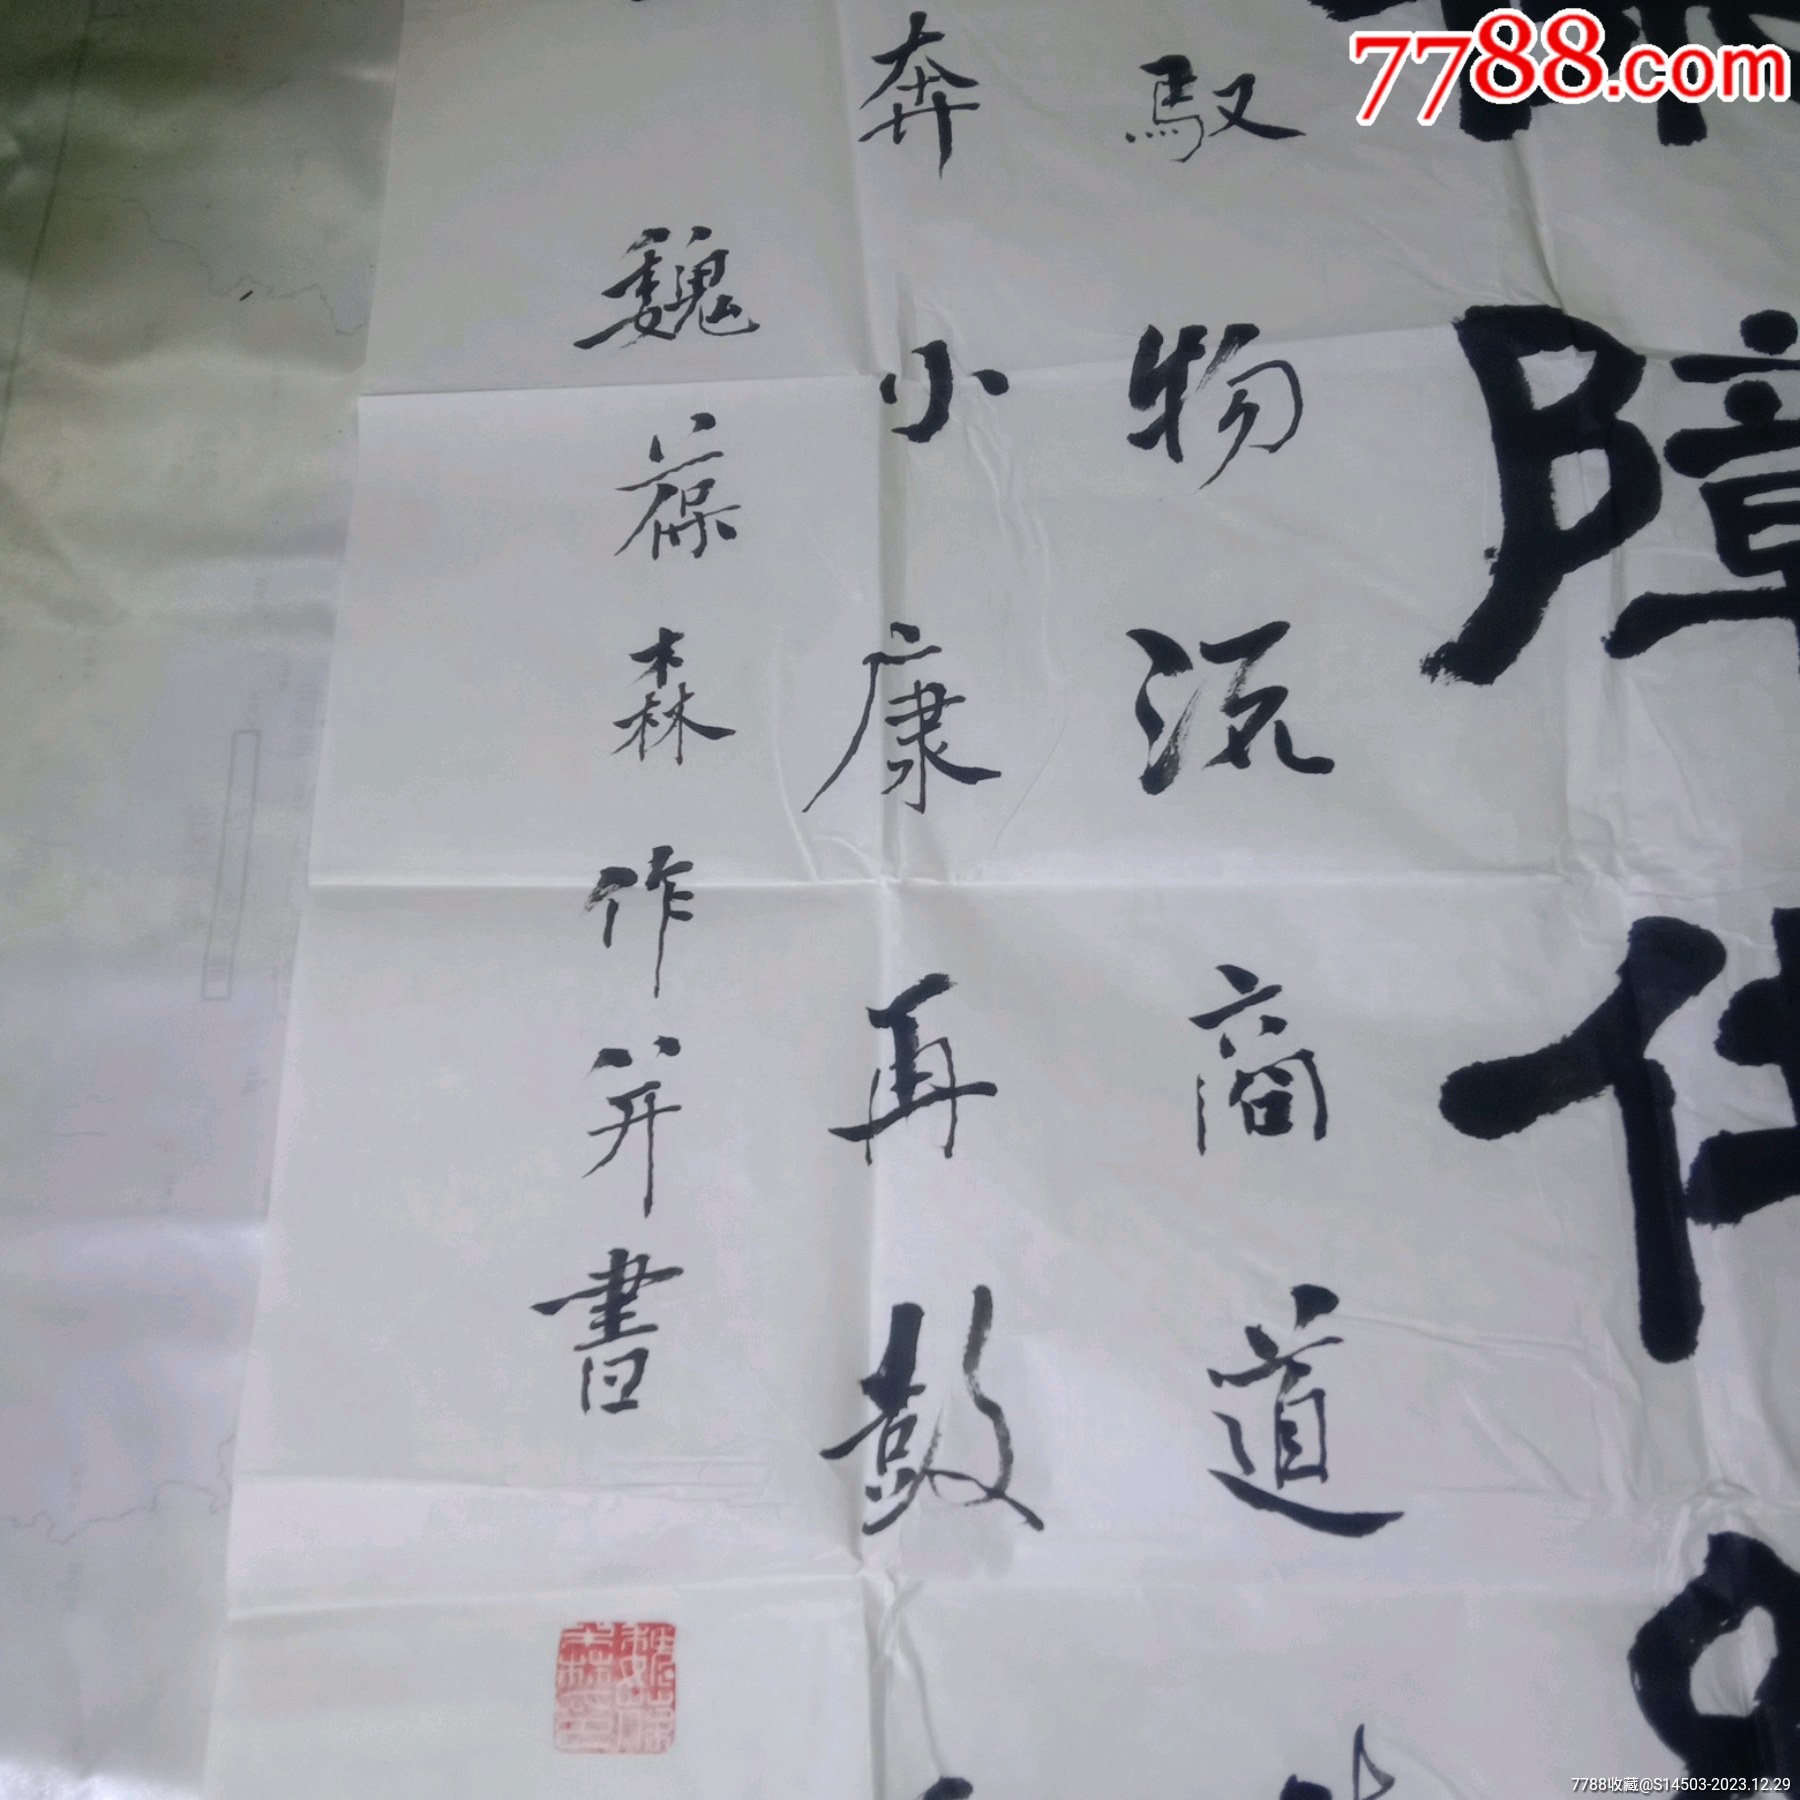 7788.com
障
驭物流商道
奔小康再鼓
魏葆森作并書
7788收藏@S14503-2023.12.29